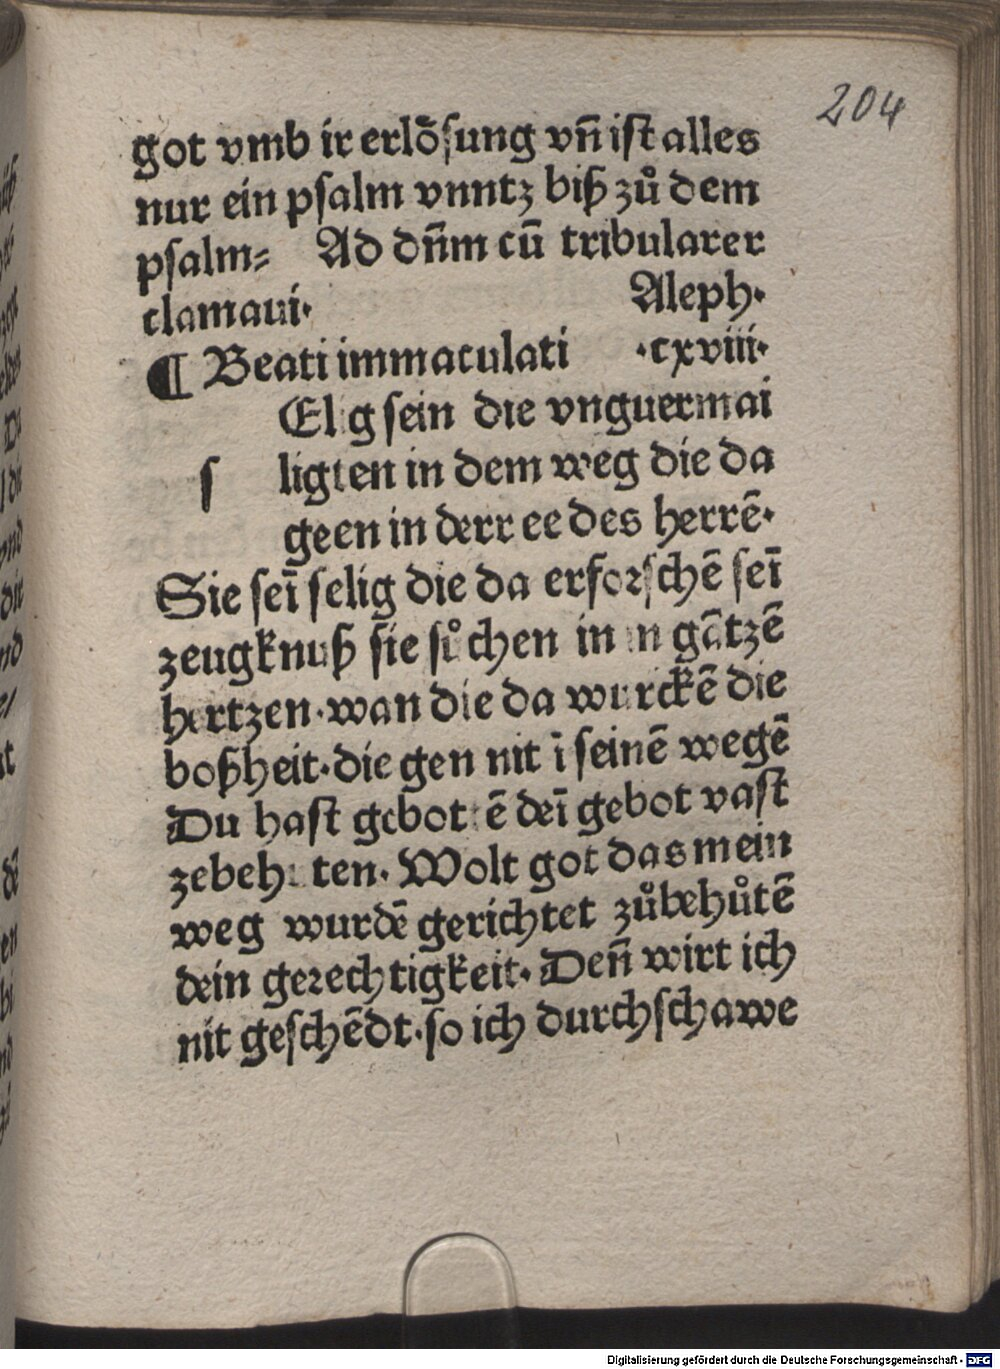 204
got vmb ir erlo̅sung vn̅ ist alles
nur ein psalm vnntz biß zů dem
psalm⸗ Ad dn̅m cu̅ tribularer
clamaui· Aleph·
¶ Beati immaculati ·cxviii·
Elig sein die vnguermai
s ligten in dem weg die da
geen in derr ee des herre̅·
Sie sei̅ selig die da erforsche̅ sei̅
zeugknuß sie sůchen in in ga̅tze̅
hertzen·wan die da wurcke̅ die
boßheit·die gen nit i̅ seine̅ wege̅
Du hast gebotte̅ dei̅ gebot vast
zebehuten· Wolt got das mein
weg wurde̅ gerichtet zůbehůte̅
dein gerechtigkeit· Den̅ wirt ich
nit gesche̅dt·so ich durchschawe
Digitalisierung gefördert durch die Deutsche Forschungsgemeinschaft - DFG